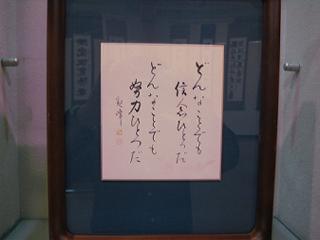 どんなことでも
信念ひとつだ
どんなことでも
努力ひとつだ